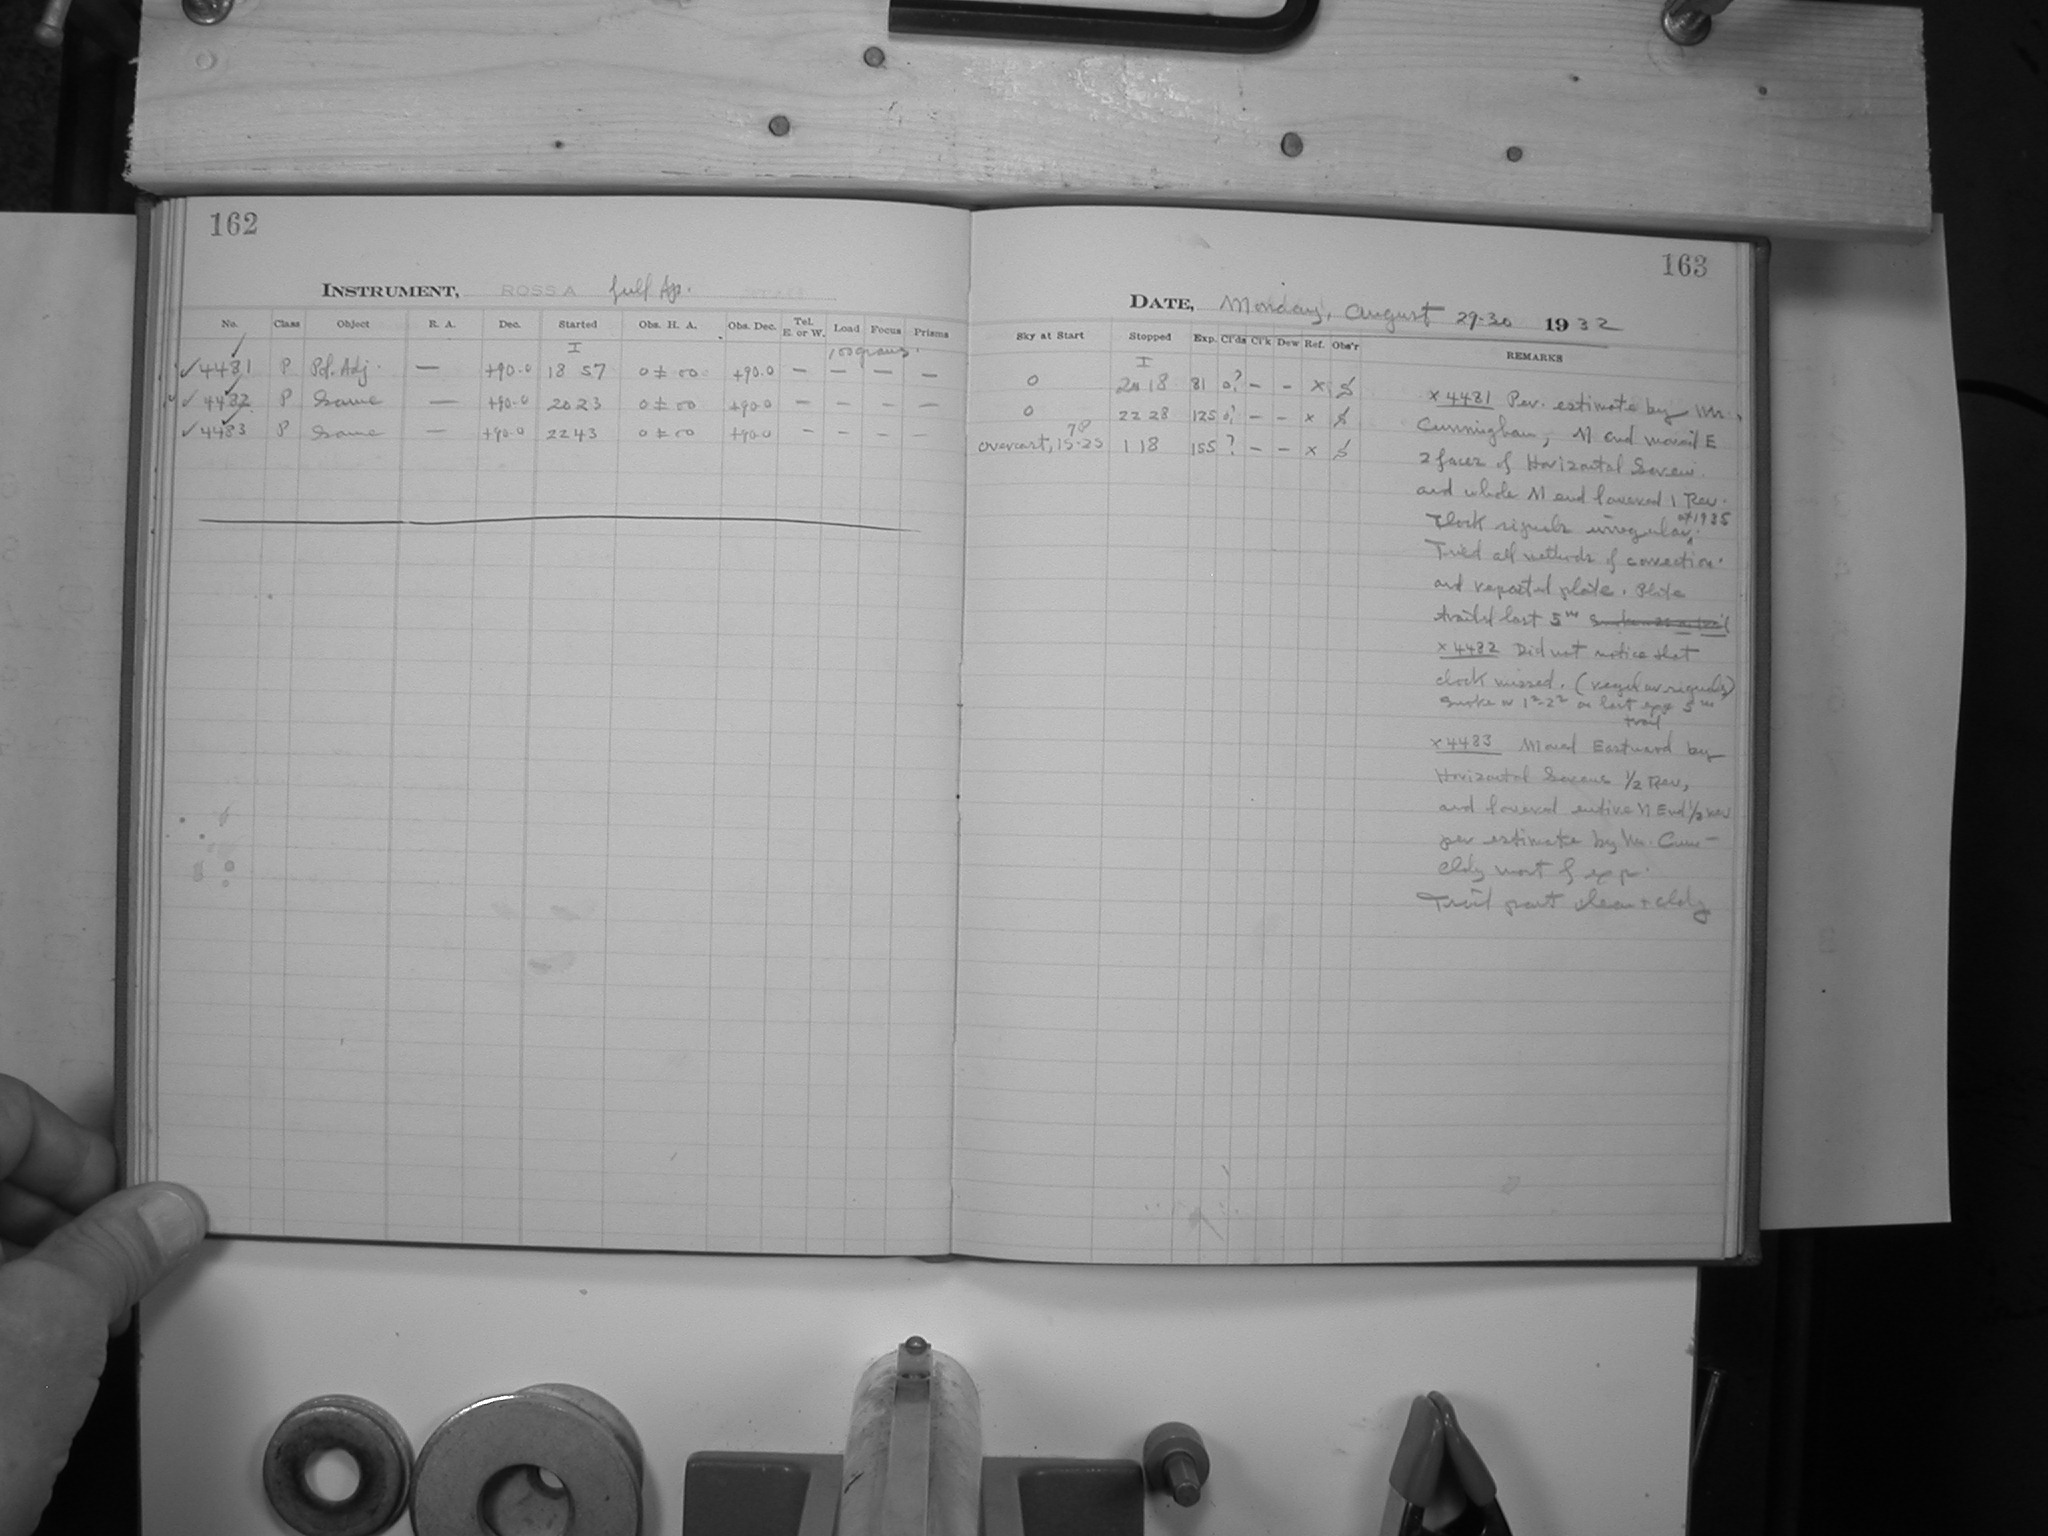 162
INSTRUMENT, ROSS A full Ap.
No. Class Object R. A. Dec. Started Obs. H. A. Obs. Dec. Tel. E. or W. Load Focus Prisms
I
✓4481 P Pol. Adj. — +90.0 18 57 0 ± 00 +90.0 — — — —
✓4482 P Same — +90.0 20 23 0 ± 00 +90.0 — — — —
✓4483 P Same — +90.0 22 43 0 ± 00 +90.0 — — — —
163
DATE, Monday, August 29-30 1932
Sky at Start Stopped Exp. Cl'ds Cl'k Dew Ref. Obs'r REMARKS
I
0 20 18 81 0? — — x
0 22 28 125 0? — — x
78
overcast, 15-25 1 18 155 ? — — x
x 4481 Per. estimate by Mr.
Cunningham, N end moved E
2 faces of Horizontal Screw.
and whole N end lowered 1 Rev.
Clock signals irregular. at 1935
Tried all methods of correction.
and repeated plate. Plate
trailed last 5m
x 4482 Did not notice that
clock missed. (regular signals)
Smoke in last exp 5m
trail
x 4483 Moved Eastward by
Horizontal Screws 1/2 Rev,
and lowered entire N End 1/2 rev
per estimate by Mr. Cun—
cldy most of exp.
Trail part clear + cldy